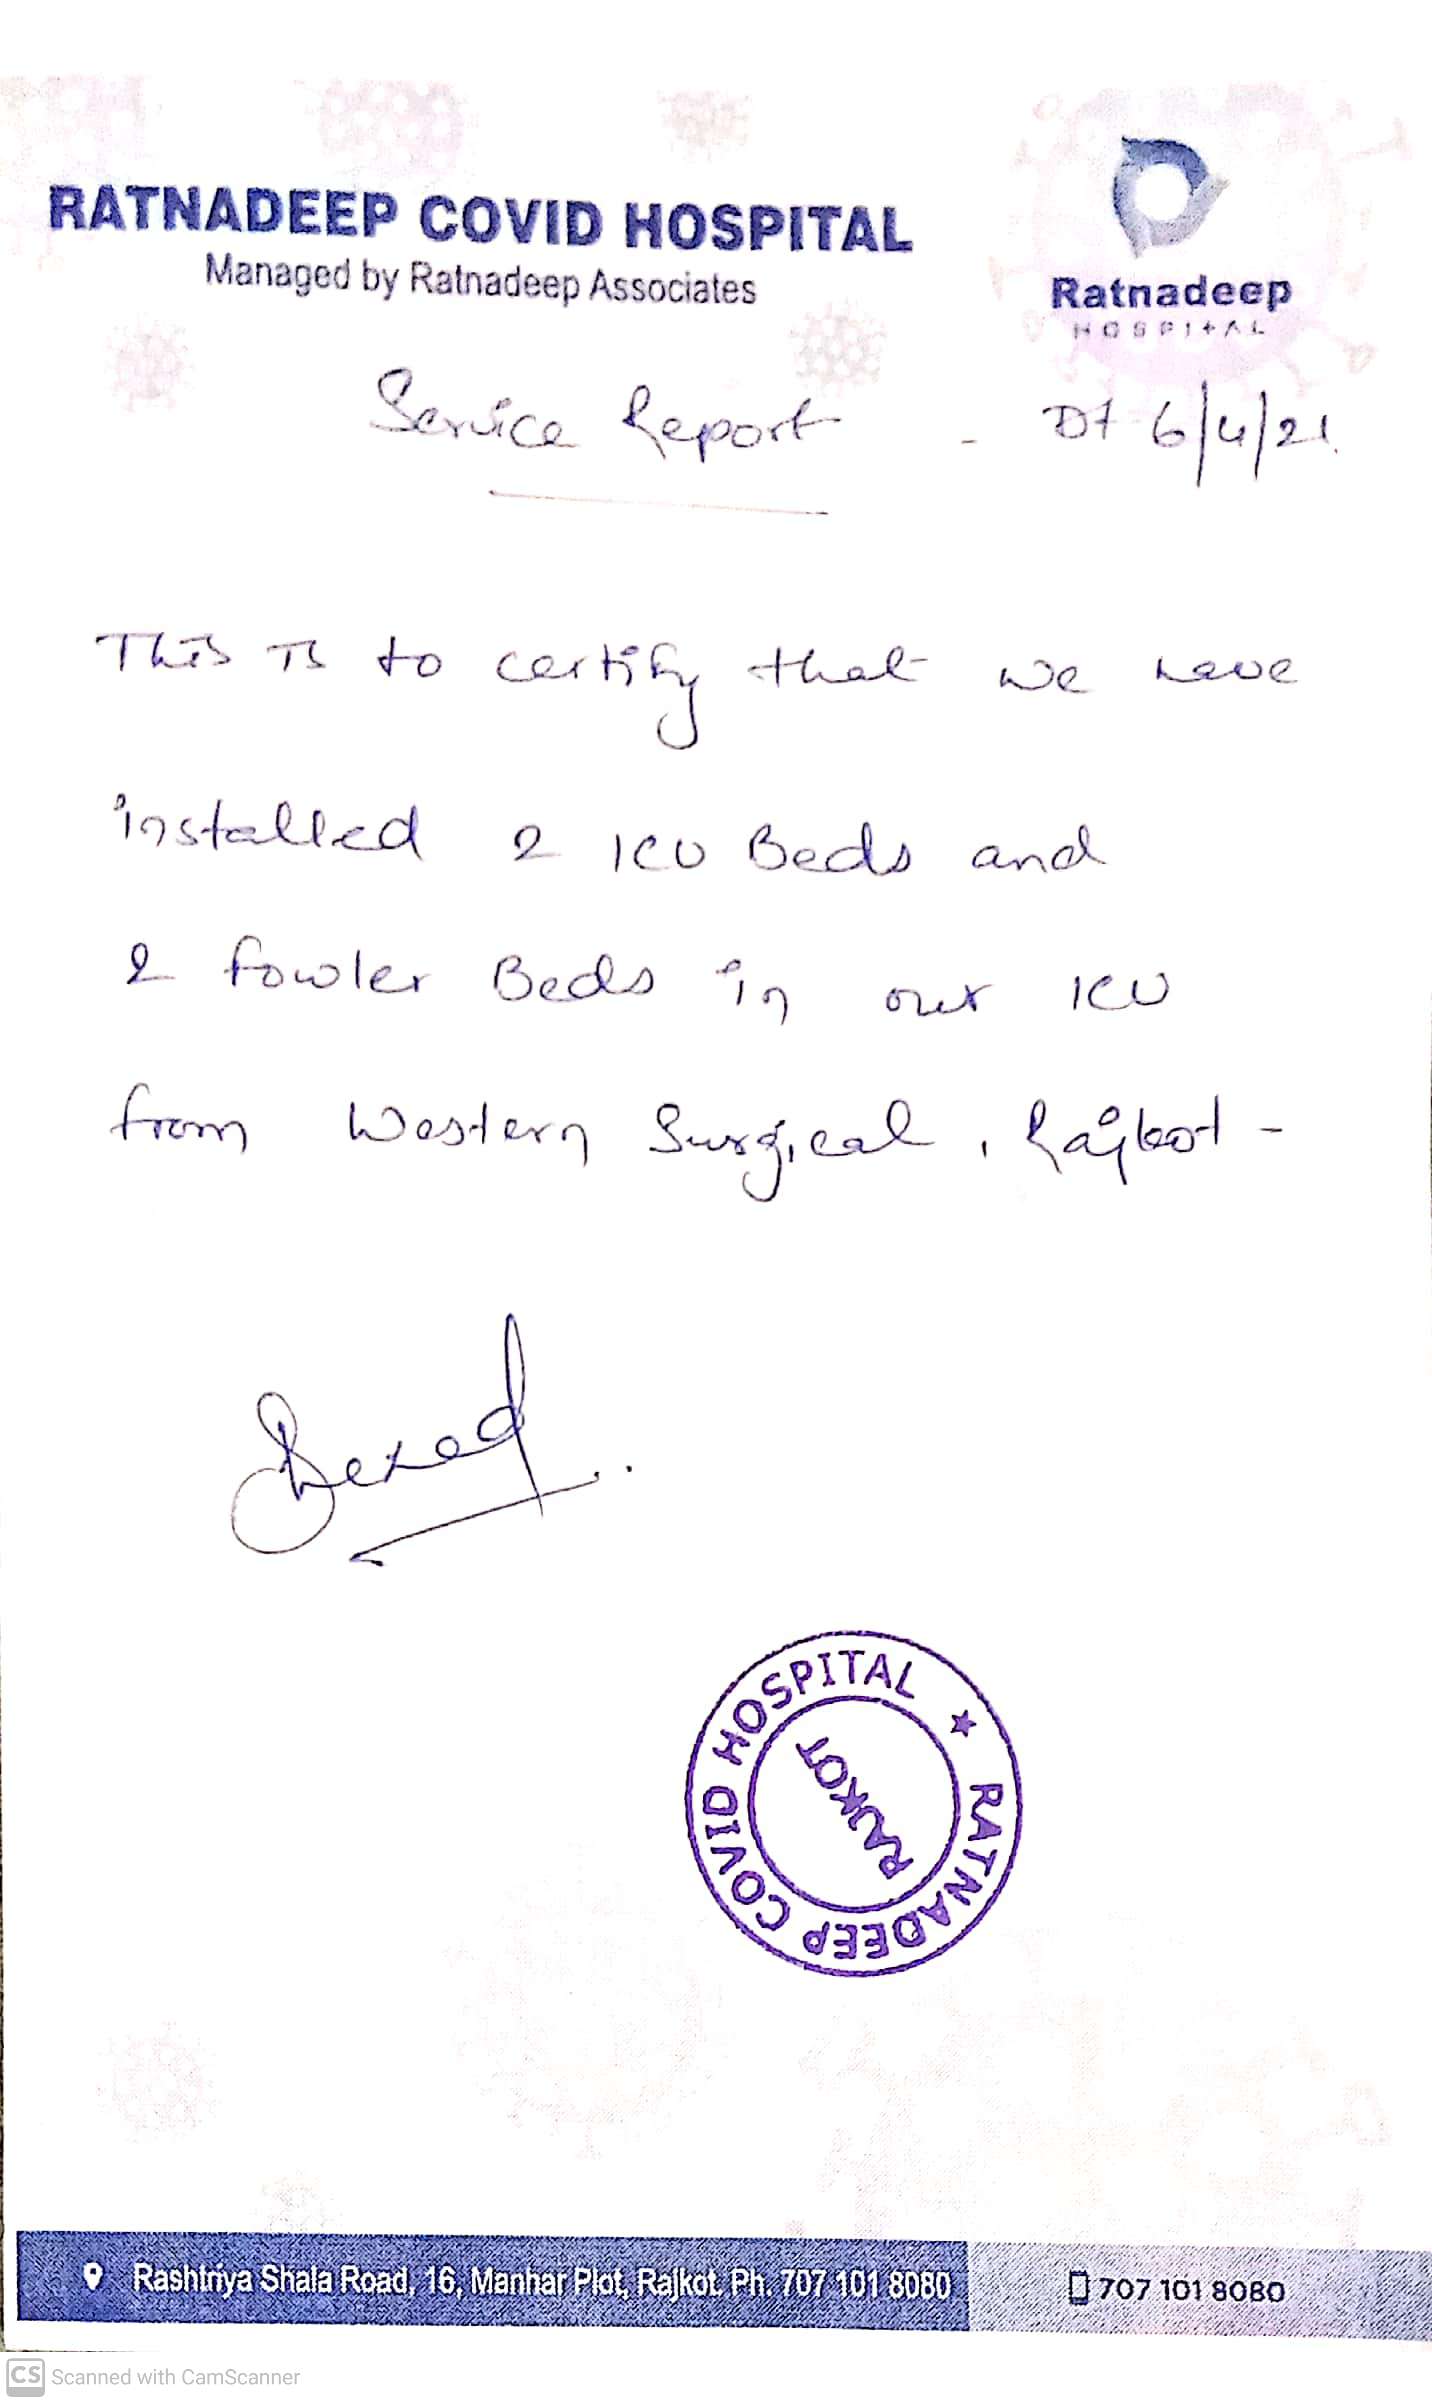 RATNADEEP COVID HOSPITAL
Managed by Ratnadeep Associates
Ratnadeep
HOSPITAL
Service Report - Dt 6/4/21.
This is to certify that we have
installed 2 ICU Beds and
2 fowler Beds in our ICU
from Western Surgical, Rajkot -
RATNADEEP COVID HOSPITAL ★
RAJKOT
Rashtriya Shala Road, 16, Manhar Plot, Rajkot. Ph. 707 101 8080
707 101 8080
CS Scanned with CamScanner